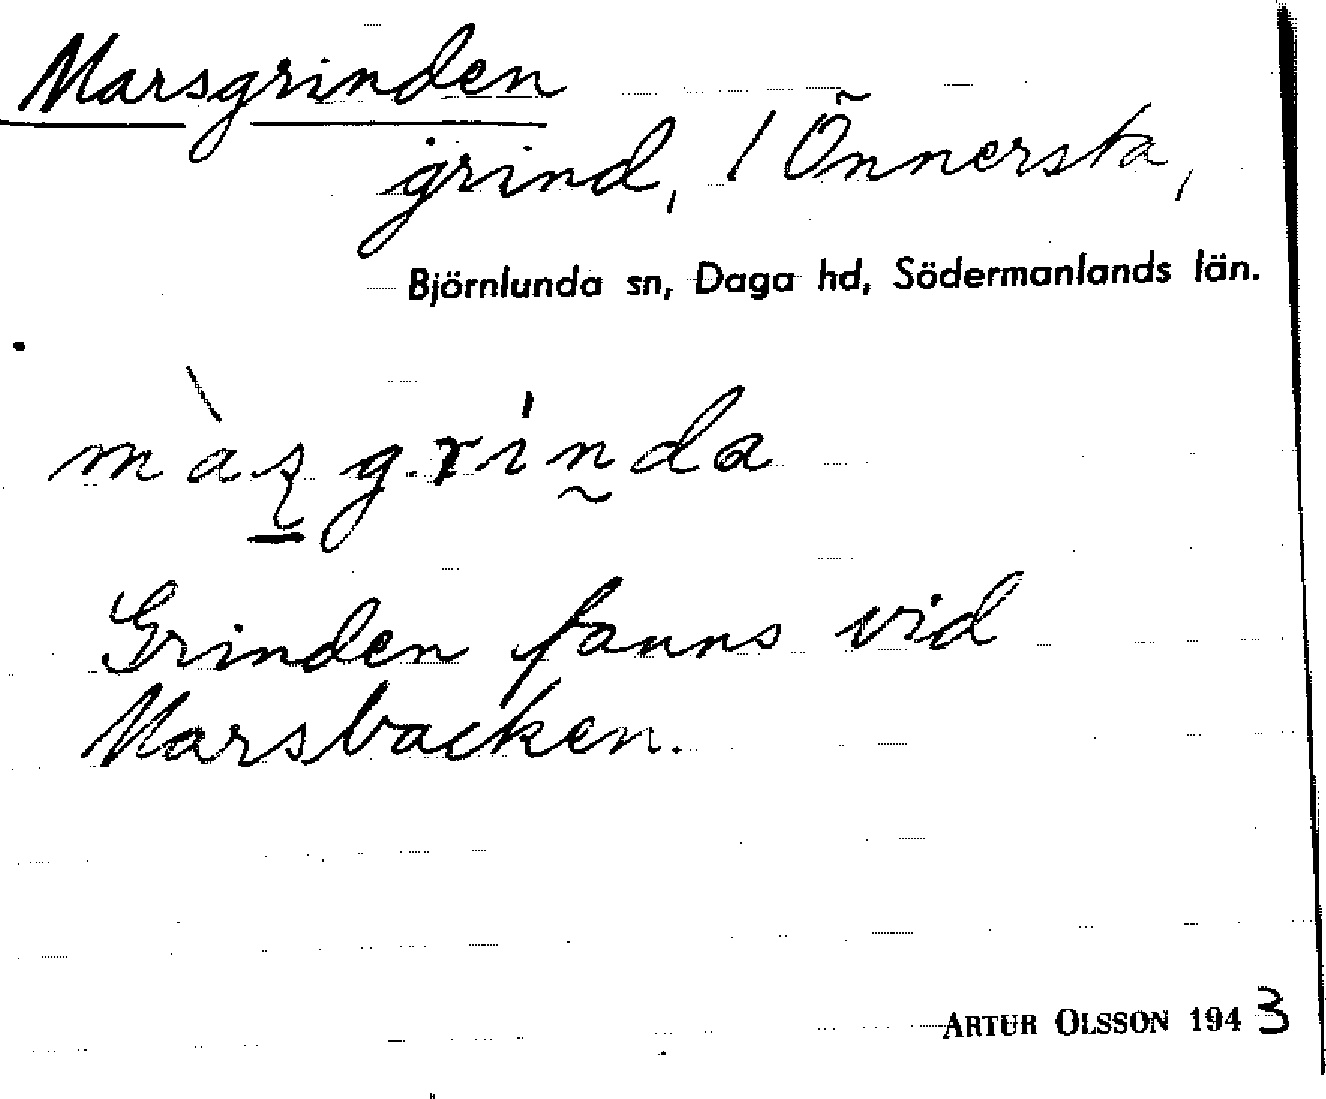 Marsgrinden
grind, / Õnnersta,
Björnlunda sn, Daga hd, Södermanlands län.
Grinden fanns vid
Marsbacken.
ARTUR OLSSON 1943